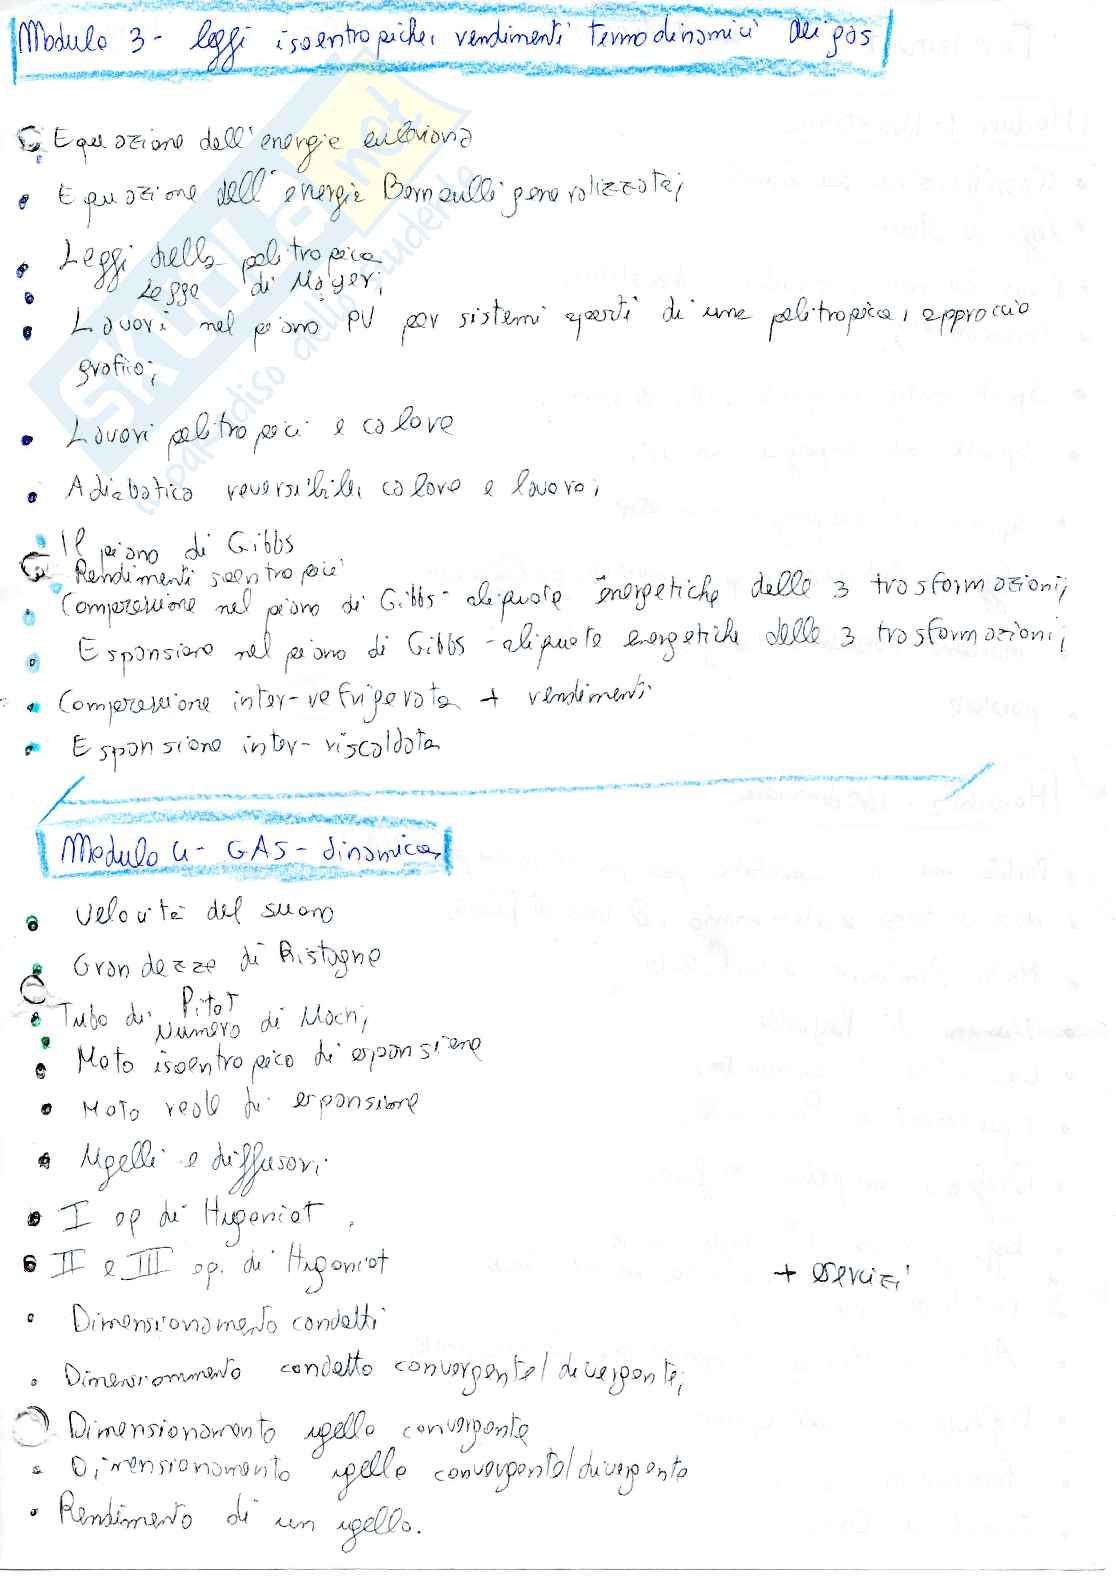 Modulo 3 - leggi isoentropiche, rendimenti termodinamici dei gas
Equazione dell'energie euleriana
Equazione dell'energie Bernoulli generalizzata;
Leggi della politropica
Legge di Mayer;
Lavori nel piano PV per sistemi aperti di una politropica, approccio
grafico;
Lavori politropici e calore
Adiabatica reversibile, calore e lavoro;
Il piano di Gibbs
Rendimenti isoentropici
Compressione nel piano di Gibbs - aliquote energetiche delle 3 trasformazioni;
Espansione nel piano di Gibbs - aliquote energetiche delle 3 trasformazioni;
Compressione inter-refrigerata + rendimenti
Espansione inter-riscaldata
Modulo 4 - GAS - dinamica
Velocità del suono
Grandezze di Ristagno
Tubo di Pitot
Numero di Mach;
Moto isoentropico di espansione
Moto reale di espansione
Ugelli e diffusori
I op di Hugoniot
II e III op. di Hugoniot
+ esercizi
Dimensionamento condotti
Dimensionamento condotto convergente/divergente;
Dimensionamento ugello convergente
Dimensionamento ugello convergente/divergente
Rendimento di un ugello.
SKUOLA.net
il paradiso dello studente